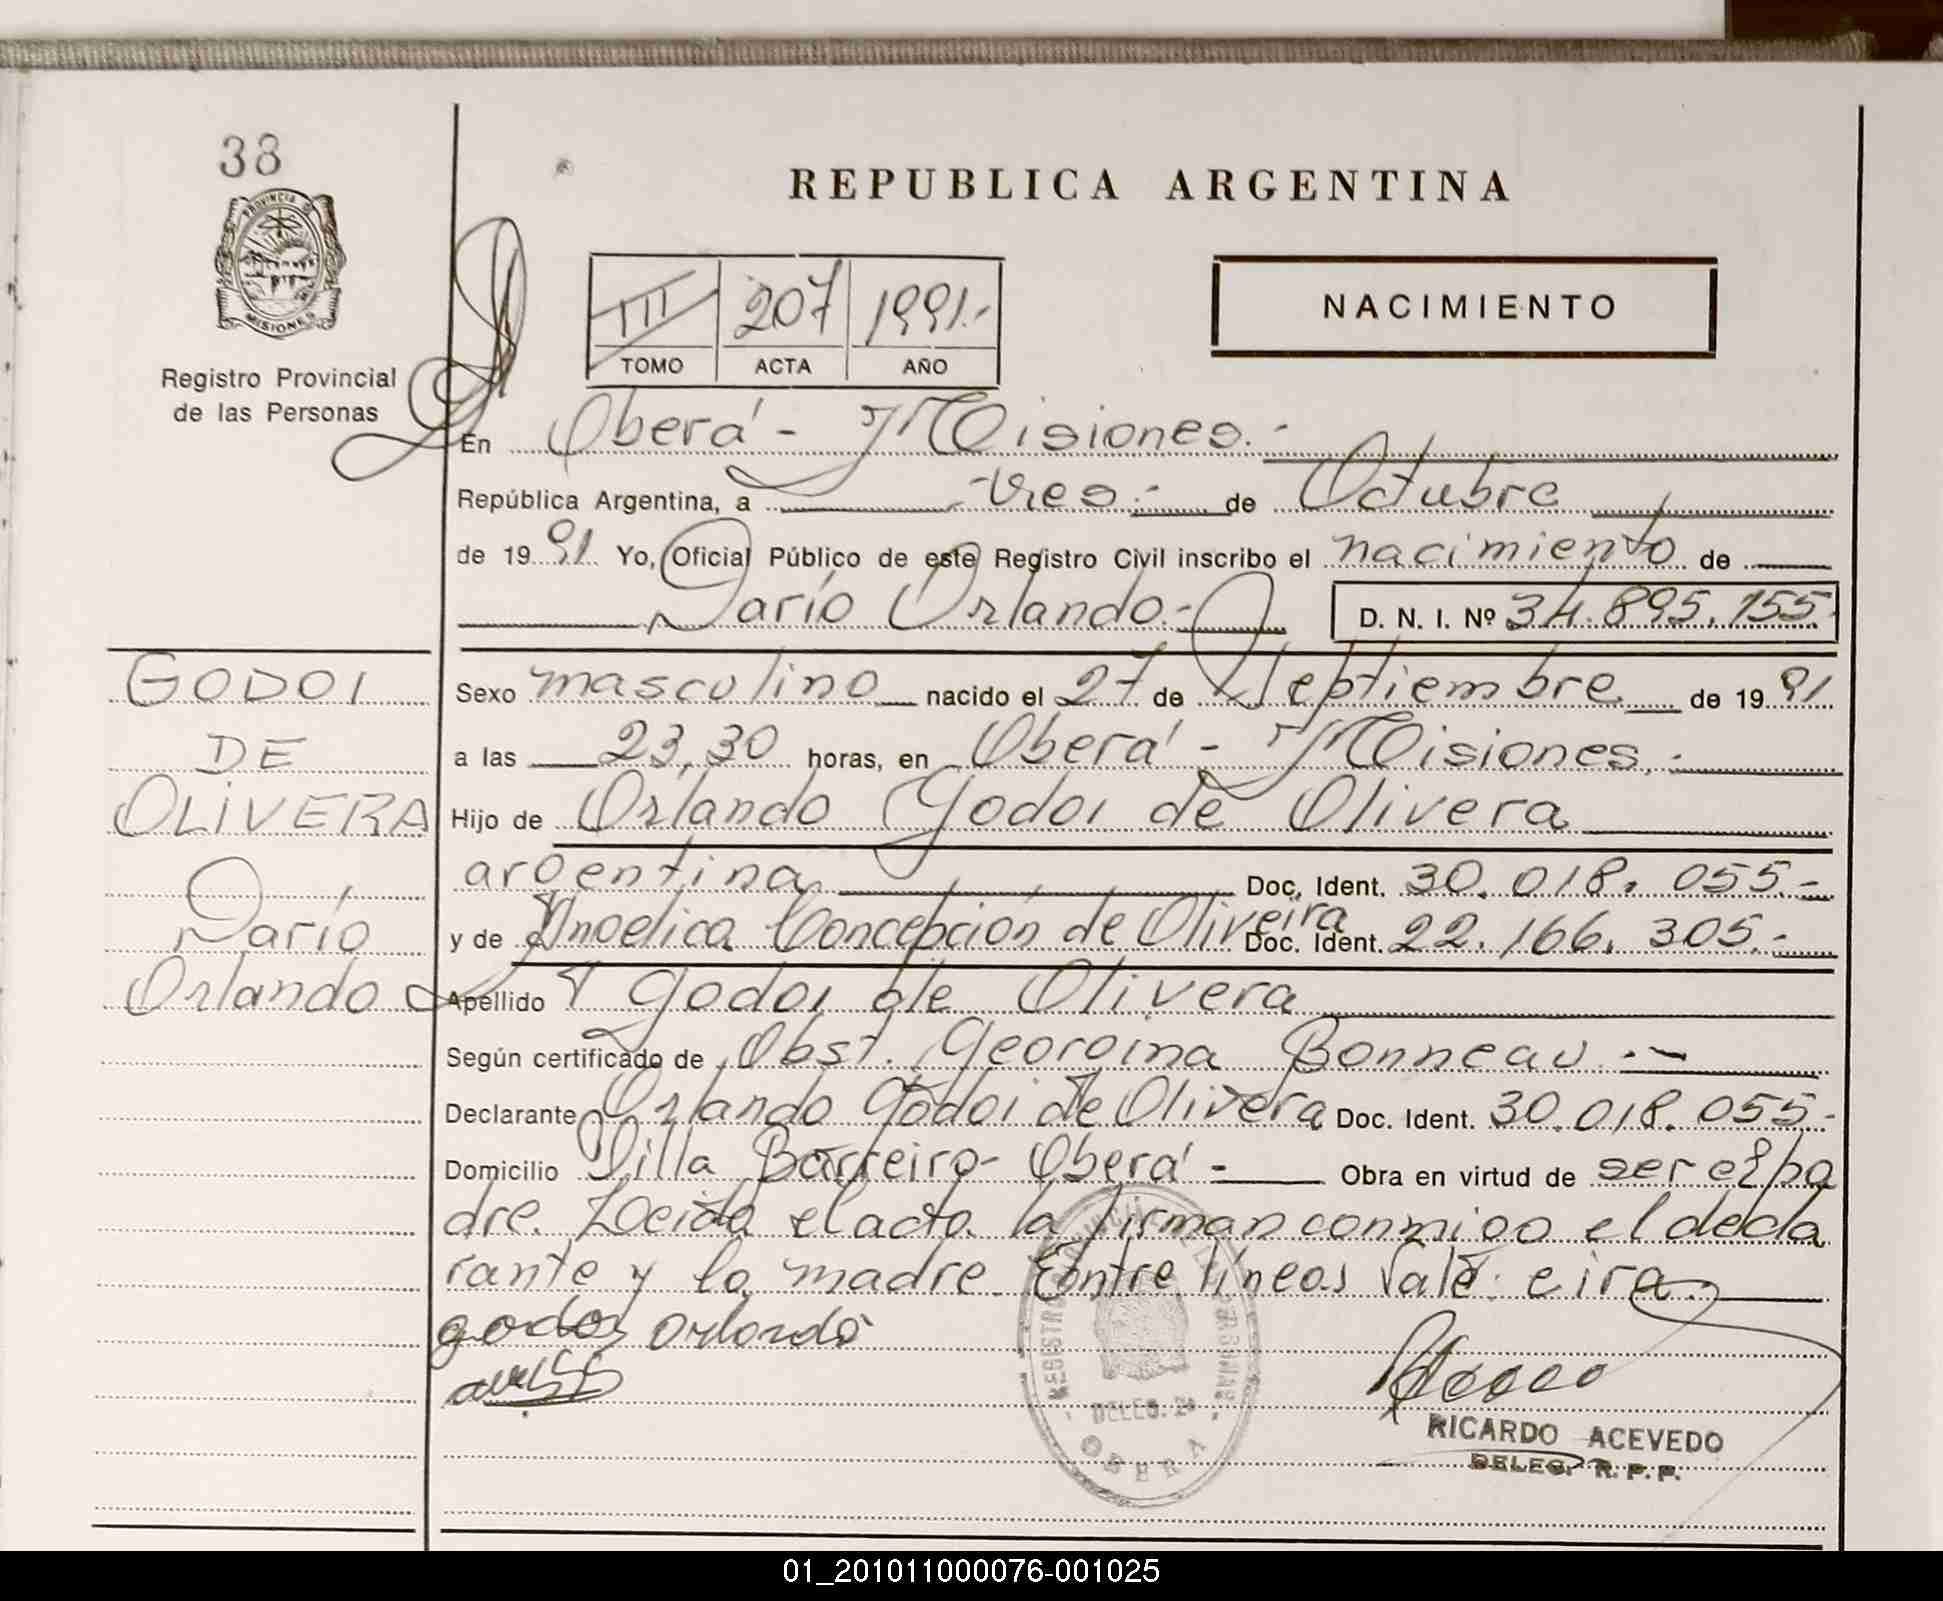 38
PROVINCIA DE
MISIONES
Registro Provincial
de las Personas
REPUBLICA ARGENTINA
III 207 1991.-
TOMO ACTA AÑO
NACIMIENTO
En Oberá - Misiones.-
República Argentina, a -tres.- de Octubre
de 1991. Yo, Oficial Público de este Registro Civil inscribo el nacimiento de
Darío Orlando.- D. N. I. Nº 34.895.155.
GODOI
DE
OLIVERA
Darío
Orlando
Sexo masculino nacido el 27 de Septiembre de 1991.
a las 23,30 horas, en Oberá - Misiones.-
Hijo de Orlando Godoi de Olivera
argentina Doc. Ident. 30.018.055.-
y de Angelica Concepción de Oliveira Doc. Ident. 22.166.305.-
Apellido Godoi de Olivera
Según certificado de Obst. Georgina Bonneau.-
Declarante Orlando Godoi de Olivera Doc. Ident. 30.018.055.-
Domicilio Villa Barreiro- Oberá - Obra en virtud de ser el pa
dre. Leida el acta la firman conmigo el decla
rante y la madre. Entre líneas Vale: eira.
godoi orlando
RICARDO ACEVEDO
DELEG. R. P. P.
DELEG. 2ª
OBERA
01_201011000076-001025